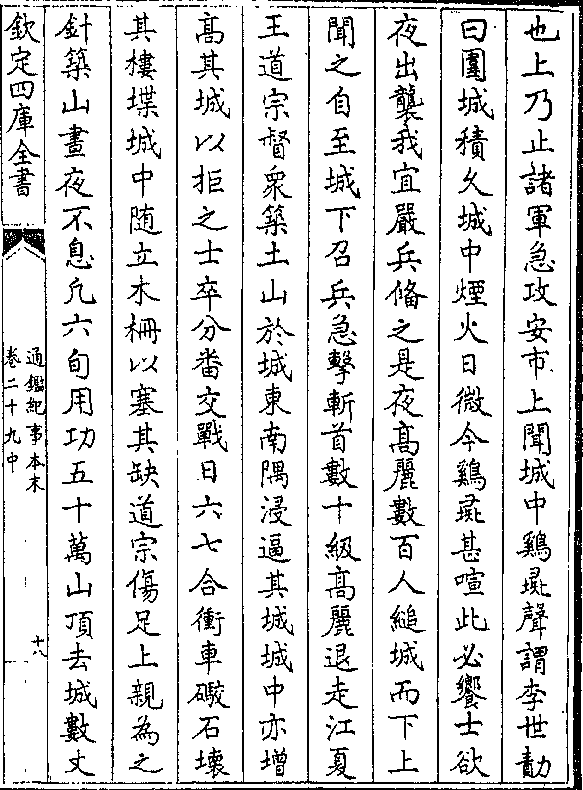 也上乃止諸軍急攻安市上聞城中鷄彘聲謂李世勣
曰圍城積久城中煙火日微今鷄彘甚喧此必饗士欲
夜出襲我宜嚴兵備之是夜髙麗數百人縋城而下上
聞之自至城下召兵急擊斬首數十級髙麗退走江夏
王道宗督衆築土山於城東南隅浸逼其城城中亦增
髙其城以拒之士卒分畨交戰日六七合衝車礮石壊
其樓堞城中随立木柵以塞其缺道宗傷足上親為之
針築山晝夜不息凢六旬用功五十萬山頂去城數丈
欽定四庫全書
通鑑紀事本末
卷二十九中
十八